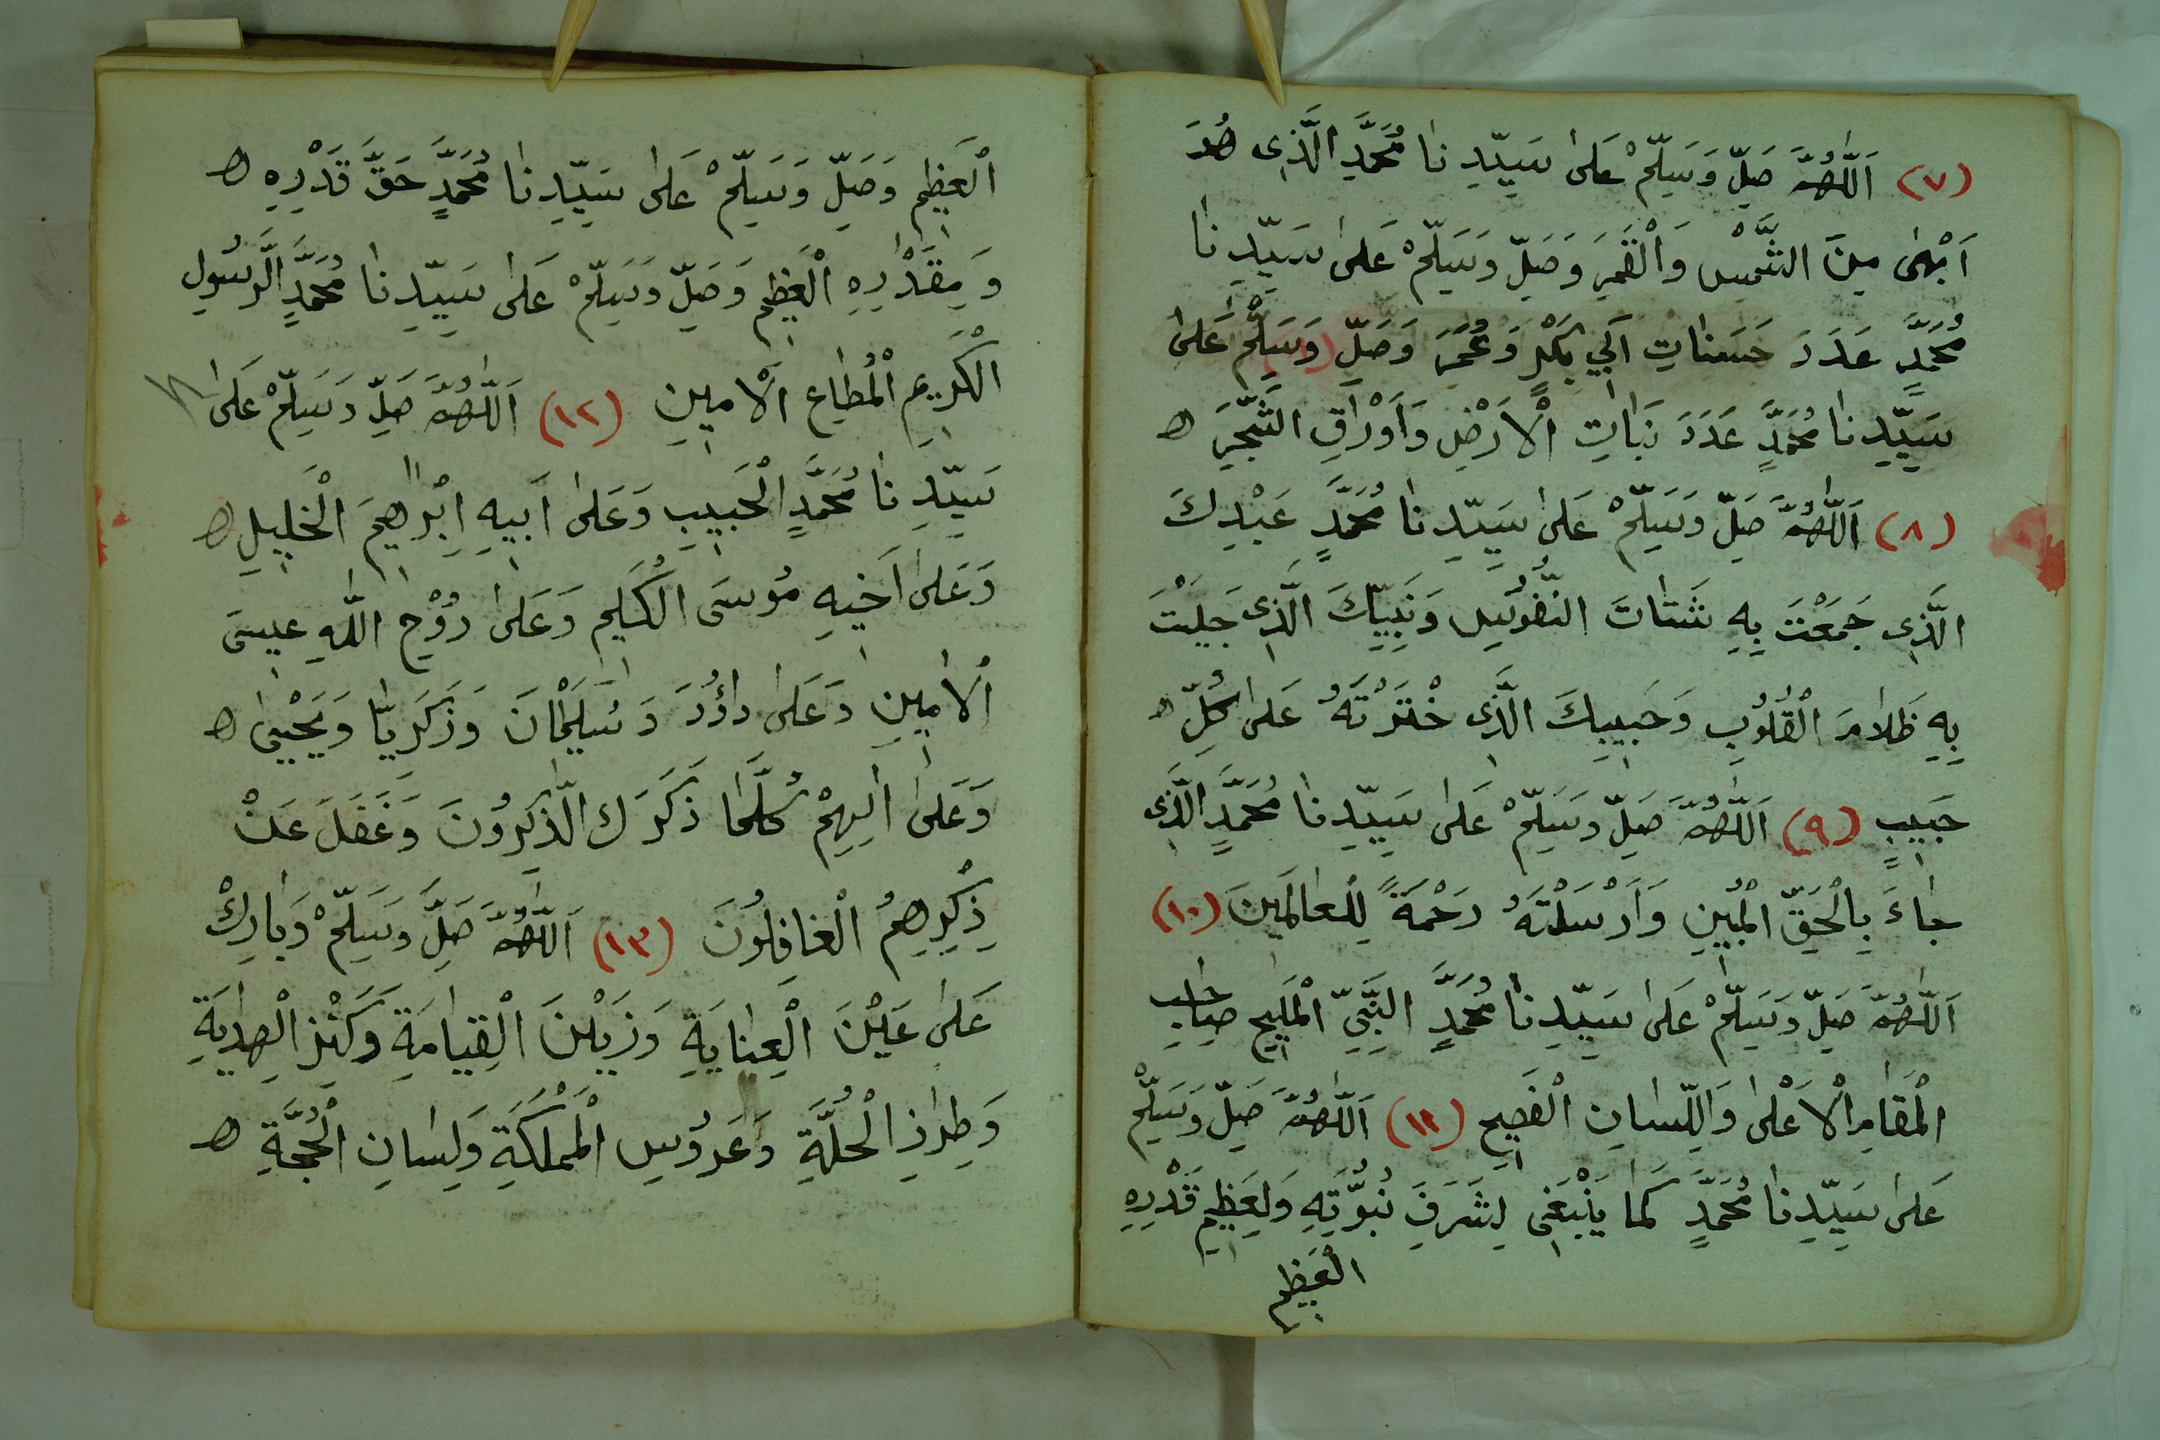 (٧) اَللّٰهُمَّ صَلِّ وَسَلِّمْ عَلٰى سَيِّدِنَا مُحَمَّدِ الَّذِى هُوَ
اَبْهٰى مِنَ الشَّمْسِ وَالْقَمَرِ وَصَلِّ وَسَلِّمْ عَلٰى سَيِّدِنَا
مُحَمَّدٍ عَدَدَ حَسَنَاتِ اَبِي بَكْرٍ وَعُمَرَ وَصَلِّ وَسَلِّمْ عَلٰى
سَيِّدِنَا مُحَمَّدٍ عَدَدَ نَبَاتِ الْاَرْضِ وَاَوْرَاقِ الشَّجَرِ ه
(٨) اَللّٰهُمَّ صَلِّ وَسَلِّمْ عَلٰى سَيِّدِنَا مُحَمَّدٍ عَبْدِكَ
الَّذِى جَمَعْتَ بِهِ شَتَاتَ النُّفُوسِ وَنَبِيِّكَ الَّذِى جَلَيْتَ
بِهِ ظَلَامَ الْقُلُوْبِ وَحَبِيبِكَ الَّذِى خْتَرْتَهُ عَلٰى كُلِّ ه
حَبِيبٍ (٩) اَللّٰهُمَّ صَلِّ وَسَلِّمْ عَلٰى سَيِّدِنَا مُحَمَّدٍ الَّذِى
جَاءَ بِالْحَقِّ الْمُبِيْنِ وَاَرْسَلْتَهُ رَحْمَةً لِلْعَالَمِينَ (١٠)
اَللّٰهُمَّ صَلِّ وَسَلِّمْ عَلٰى سَيِّدِنَا مُحَمَّدٍ النَّبِيِّ الْمَلِيحِ صَاحِبِ
الْمَقَامِ الْاَعْلٰى وَاللِّسَانِ الْفَصِيحِ (١١) اَللّٰهُمَّ صَلِّ وَسَلِّمْ
عَلٰى سَيِّدِنَا مُحَمَّدٍ كَمَا يَنْبَغِى لِشَرَفِ نُبُوَّتِهِ وَلِعَظِيمِ قَدْرِهِ
الْعَظِيمِ
الْعَظِيمِ وَصَلِّ وَسَلِّمْ عَلٰى سَيِّدِنَا مُحَمَّدٍ حَقَّ قَدْرِهِ ه
وَمِقْدَارِهِ الْعَظِيمِ وَصَلِّ وَسَلِّمْ عَلٰى سَيِّدِنَا مُحَمَّدٍ الرَّسُولِ
الْكَرِيمِ الْمُطَاعِ الْاَمِينِ (١٢) اَللّٰهُمَّ صَلِّ وَسَلِّمْ عَلٰى
سَيِّدِنَا مُحَمَّدٍ الْحَبِيبِ وَعَلٰى اَبِيهِ اِبْرَاهِيمَ الْخَلِيلِ ه
وَعَلٰى اَخِيهِ مُوسَى الْكَلِيمِ وَعَلٰى رُوْحِ اللّٰهِ عِيسَى
الْاَمِينِ وَعَلٰى دَاوُدَ وَسُلَيْمَانَ وَزَكَرِيَّا وَيَحْيٰى ه
وَعَلٰى اٰلِهِمْ كُلَّمَا ذَكَرَكَ الذَّاكِرُونَ وَغَفَلَ عَنْ
ذِكْرِهِمُ الْغَافِلُونَ (١٣) اَللّٰهُمَّ صَلِّ وَسَلِّمْ وَبَارِكْ
عَلٰى عَيْنِ الْعِنَايَةِ وَزَيْنِ الْقِيَامَةِ وَكَنْزِ الْهِدَايَةِ
وَطِرَازِ الْحُلَّةِ وَعَرُوْسِ الْمَمْلَكَةِ وَلِسَانِ الْحُجَّةِ ه